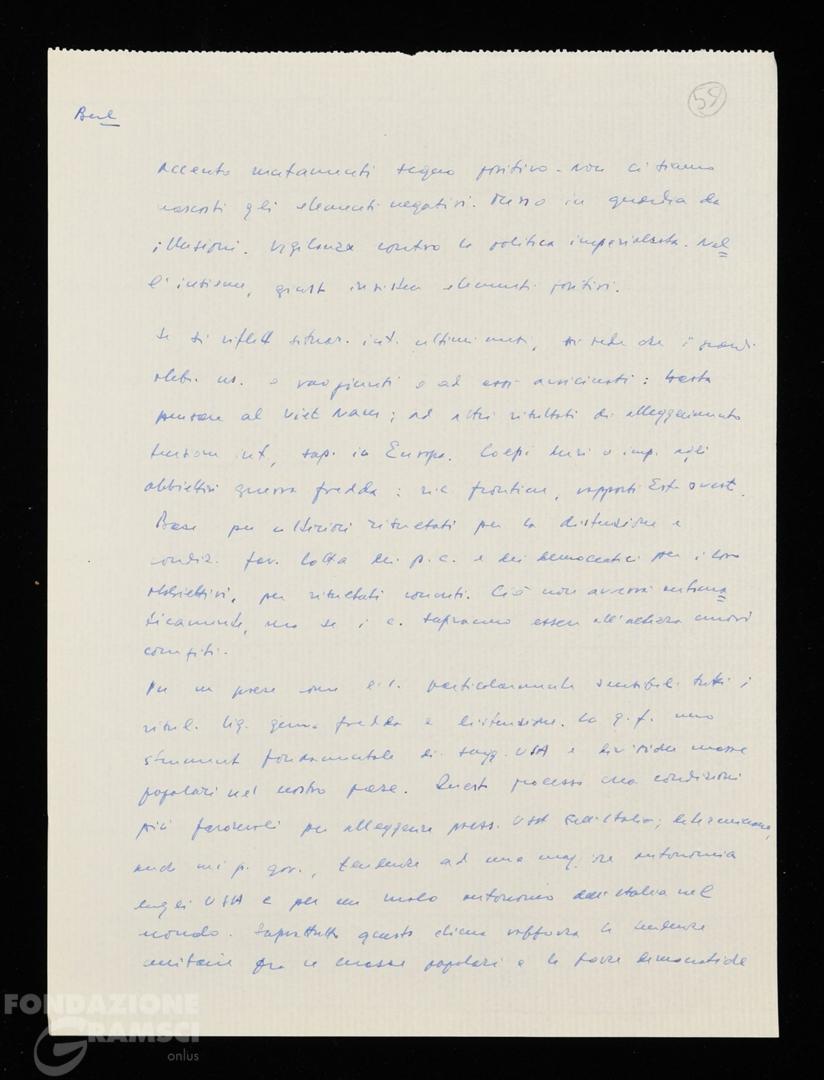 59
Berl
Accento mutamenti segno positivo. Non ci siamo
nascosti gli elementi negativi. Messo in guardia da
illusioni. Vigilanza contro la politica imperialista. Nel
l'insieme, giusto insistere elementi positivi.
Se si riflette situaz. int. ultimi mesi, si vede che i grandi
obb. ns. o raggiunti o ad essi avvicinati: basta
pensare al Viet Nam; ad altri risultati di alleggerimento
tensione int., sop. in Europa. Colpi duri a imp. negli
obbiettivi guerra fredda: ric. frontiere, rapporti Est-ovest.
Base per ulteriori risultati per la distensione e
condiz. fav. lotta dei p.c. e dei democratici per i loro
obbiettivi, per risultati concreti. Ciò non avverrà automa
ticamente, ma se i c. sapranno essere all'altezza nuovi
compiti.
Per un paese come l'I. particolarmente sensibili tutti i
risul. liq. guerra fredda e distensione. La g.f. uno
strumento fondamentale di sogg. USA e divisione masse
popolari nel nostro paese. Questo processo crea condizioni
più favorevoli per alleggerire press. USA sull'Italia; determinare,
anche nei p. gov., tendenze ad una magg.re autonomia
dagli USA e per un ruolo autonomo dell'Italia nel
mondo. Soprattutto questo clima rafforza le tendenze
unitarie fra le masse popolari e le forze democratiche
FONDAZIONE
GRAMSCI
onlus